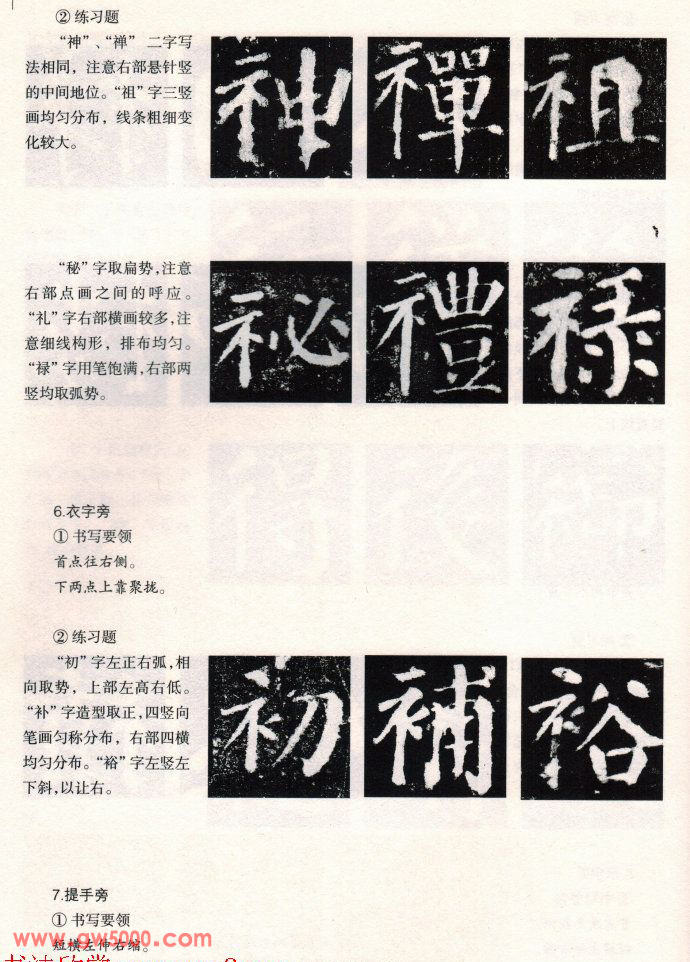 ② 练习题
“神”、“禅” 二字写
法相同，注意右部悬针竖
的中间地位。“祖”字三竖
画均匀分布，线条粗细变
化较大。
神 禪 祖
“秘”字取扁势，注意
右部点画之间的呼应。
“礼”字右部横画较多，注
意细线构形，排布均匀。
“禄”字用笔饱满，右部两
竖均取弧势。
祕 禮 禄
6.衣字旁
① 书写要领
首点往右侧。
下两点上靠聚拢。
② 练习题
“初”字左正右弧，相
向取势，上部左高右低。
“补”字造型取正，四竖向
笔画匀称分布，右部四横
均匀分布。“裕”字左竖左
下斜，以让右。
初 補 裕
7.提手旁
① 书写要领
短横左伸右缩。
www.gw5000.com